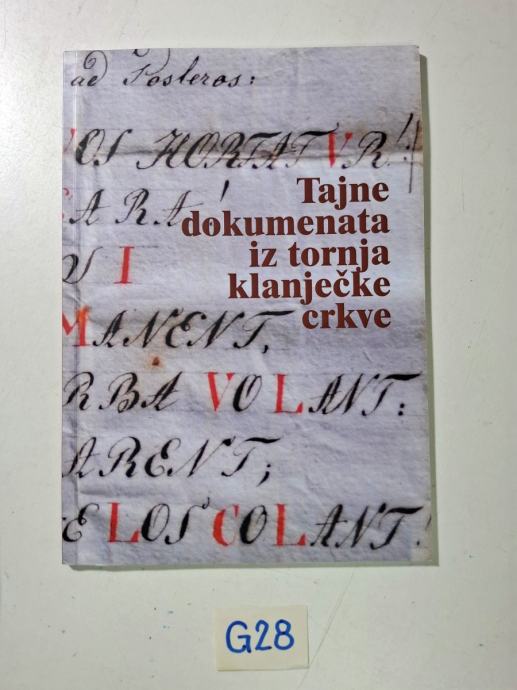 ad Posteros:
OS HORTATVR!
ARA!
I
MANENT,
RBA VOLANT:
ARENT;
E LOS COLANT!
Tajne
dokumenata
iz tornja
klanječke
crkve
G28